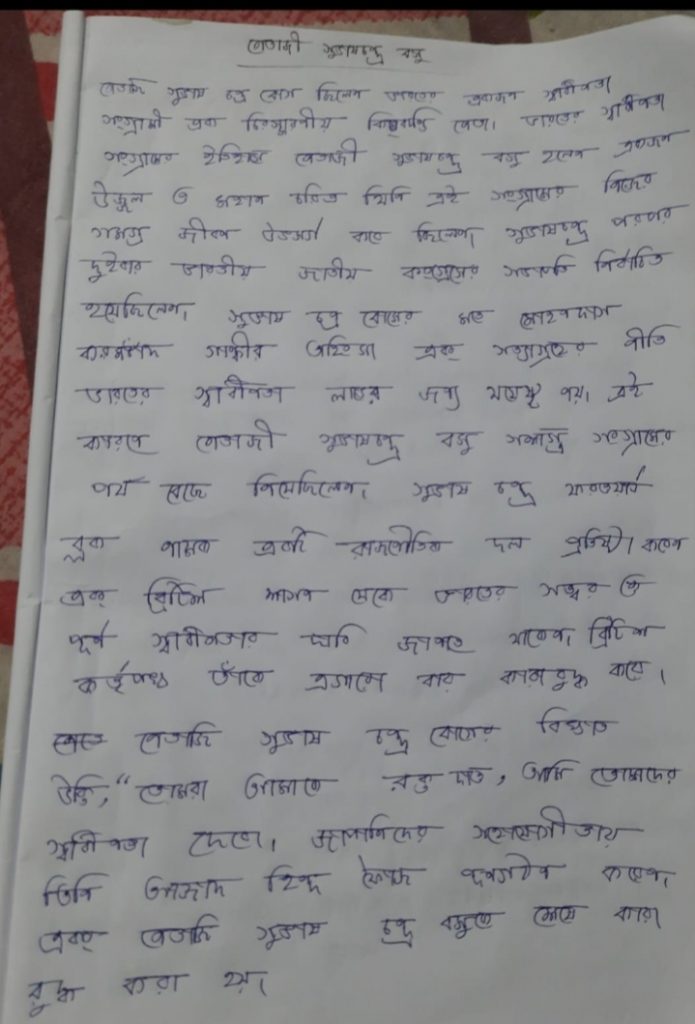 নেতাজী সুভাষচন্দ্র বসু
নেতাজি সুভাষ চন্দ্র বোস ছিলেন ভারতের একজন স্বাধীনতা
সংগ্রামী এবং চিরস্মরণীয় কিংবদন্তি নেতা। ভারতের স্বাধীনতা
সংগ্রামের ইতিহাস নেতাজী সুভাষচন্দ্র বসু হলেন একজন
উজ্জ্বল ও মহান চরিত্র যিনি এই সংগ্রামের নিজের
সমগ্র জীবন উৎসর্গ করে ছিলেন। সুভাষচন্দ্র পরপর
দুইবার ভারতীয় জাতীয় কংগ্রেসের সভাপতি নির্বাচিত
হয়েছিলেন। সুভাষ চন্দ্র বোসের মতে মোহনদাস
করমচাঁদ গান্ধীর অহিংসা এবং সত্যাগ্রহের নীতি
ভারতের স্বাধীনতা লাভের জন্য যথেষ্ট নয়। এই
কারণে নেতাজী সুভাষচন্দ্র বসু সশস্ত্র সংগ্রামের
পথ বেছে নিয়েছিলেন। সুভাষ চন্দ্র ফরওয়ার্ড
ব্লক নামক একটি রাজনৈতিক দল প্রতিষ্ঠা করেন
এবং ব্রিটিশ শাসন থেকে ভারতের সত্বর ও
পূর্ণ স্বাধীনতার দাবি জানাতে থাকেন। ব্রিটিশ
কর্তৃপক্ষ তাঁকে এগারো বার কারারুদ্ধ করে।
নেতাজি সুভাষ চন্দ্র বোসের বিখ্যাত
উক্তি, "তোমরা আমাকে রক্ত দাও, আমি তোমাদের
স্বাধীনতা দেবো। জাপানিদের সহযোগীতায়
তিনি আজাদ হিন্দ ফৌজ পুনর্গঠন করেন।
এবং নেতাজি সুভাষ চন্দ্র বসুকে শেষে কারা
রুদ্ধ করা হয়।